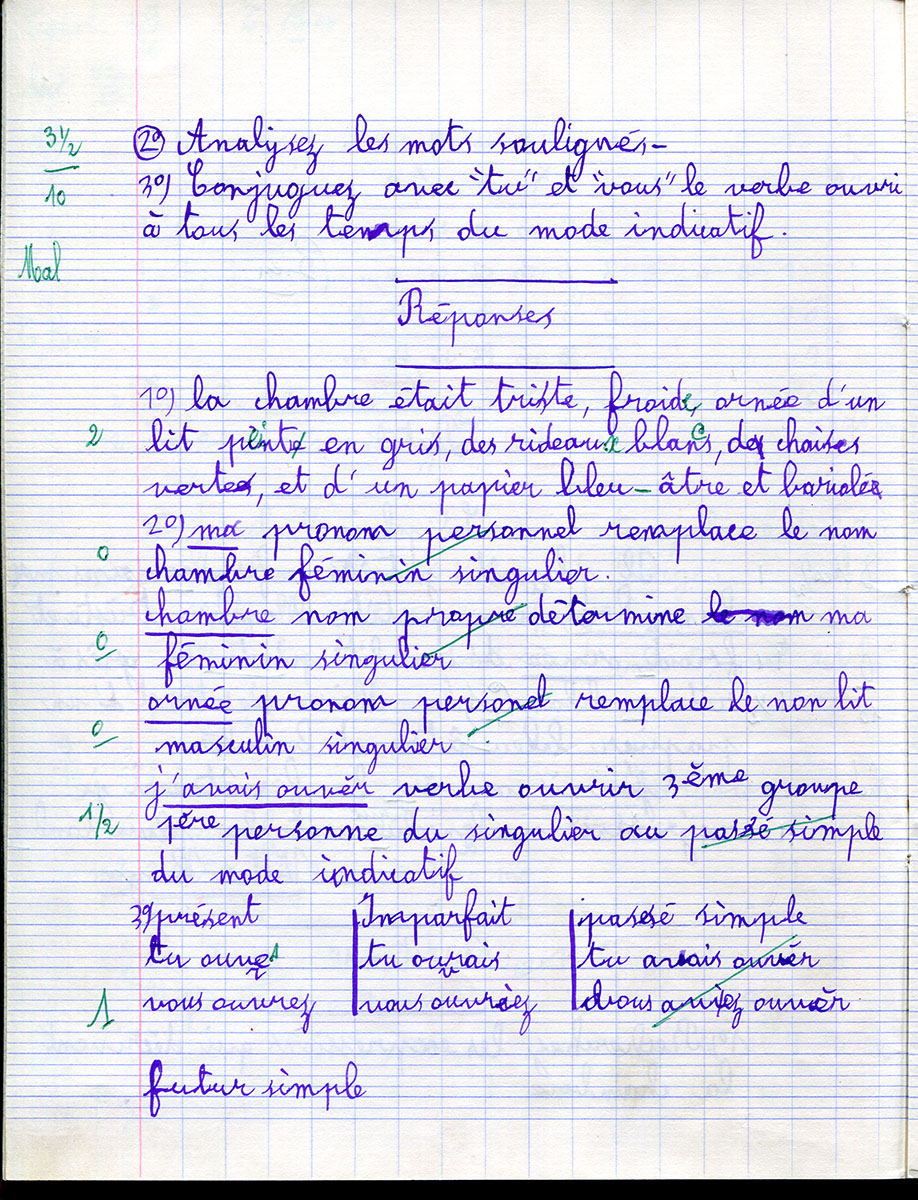 3 1/2
10
Mal
2º) Analysez les mots soulignés-
3º) Conjuguez avec "tu" et "vous" le verbe ouvri
à tous les temps du mode indicatif.
Réponses
1º) la chambre était triste, froide, ornée d'un
2 lit peint en gris, des rideaux blancs, de chaises
vertes, et d'un papier bleu-âtre et bariolé
2º) ma pronom personnel remplace le nom
0 chambre féminin singulier.
chambre nom propre détermine le nom ma
0 féminin singulier
ornée pronom personel remplace le non lit
0 masculin singulier
j'avais ouvêr verbe ouvrir 3ême groupe
1/2 1ère personne du singulier au passé simple
du mode indicatif
3º) présent Imparfait passé simple
tu ouvres tu ouvrais tu avais ouvêr
1 vous ouvrez vous ouvriez vous aviez ouvêr
futur simple